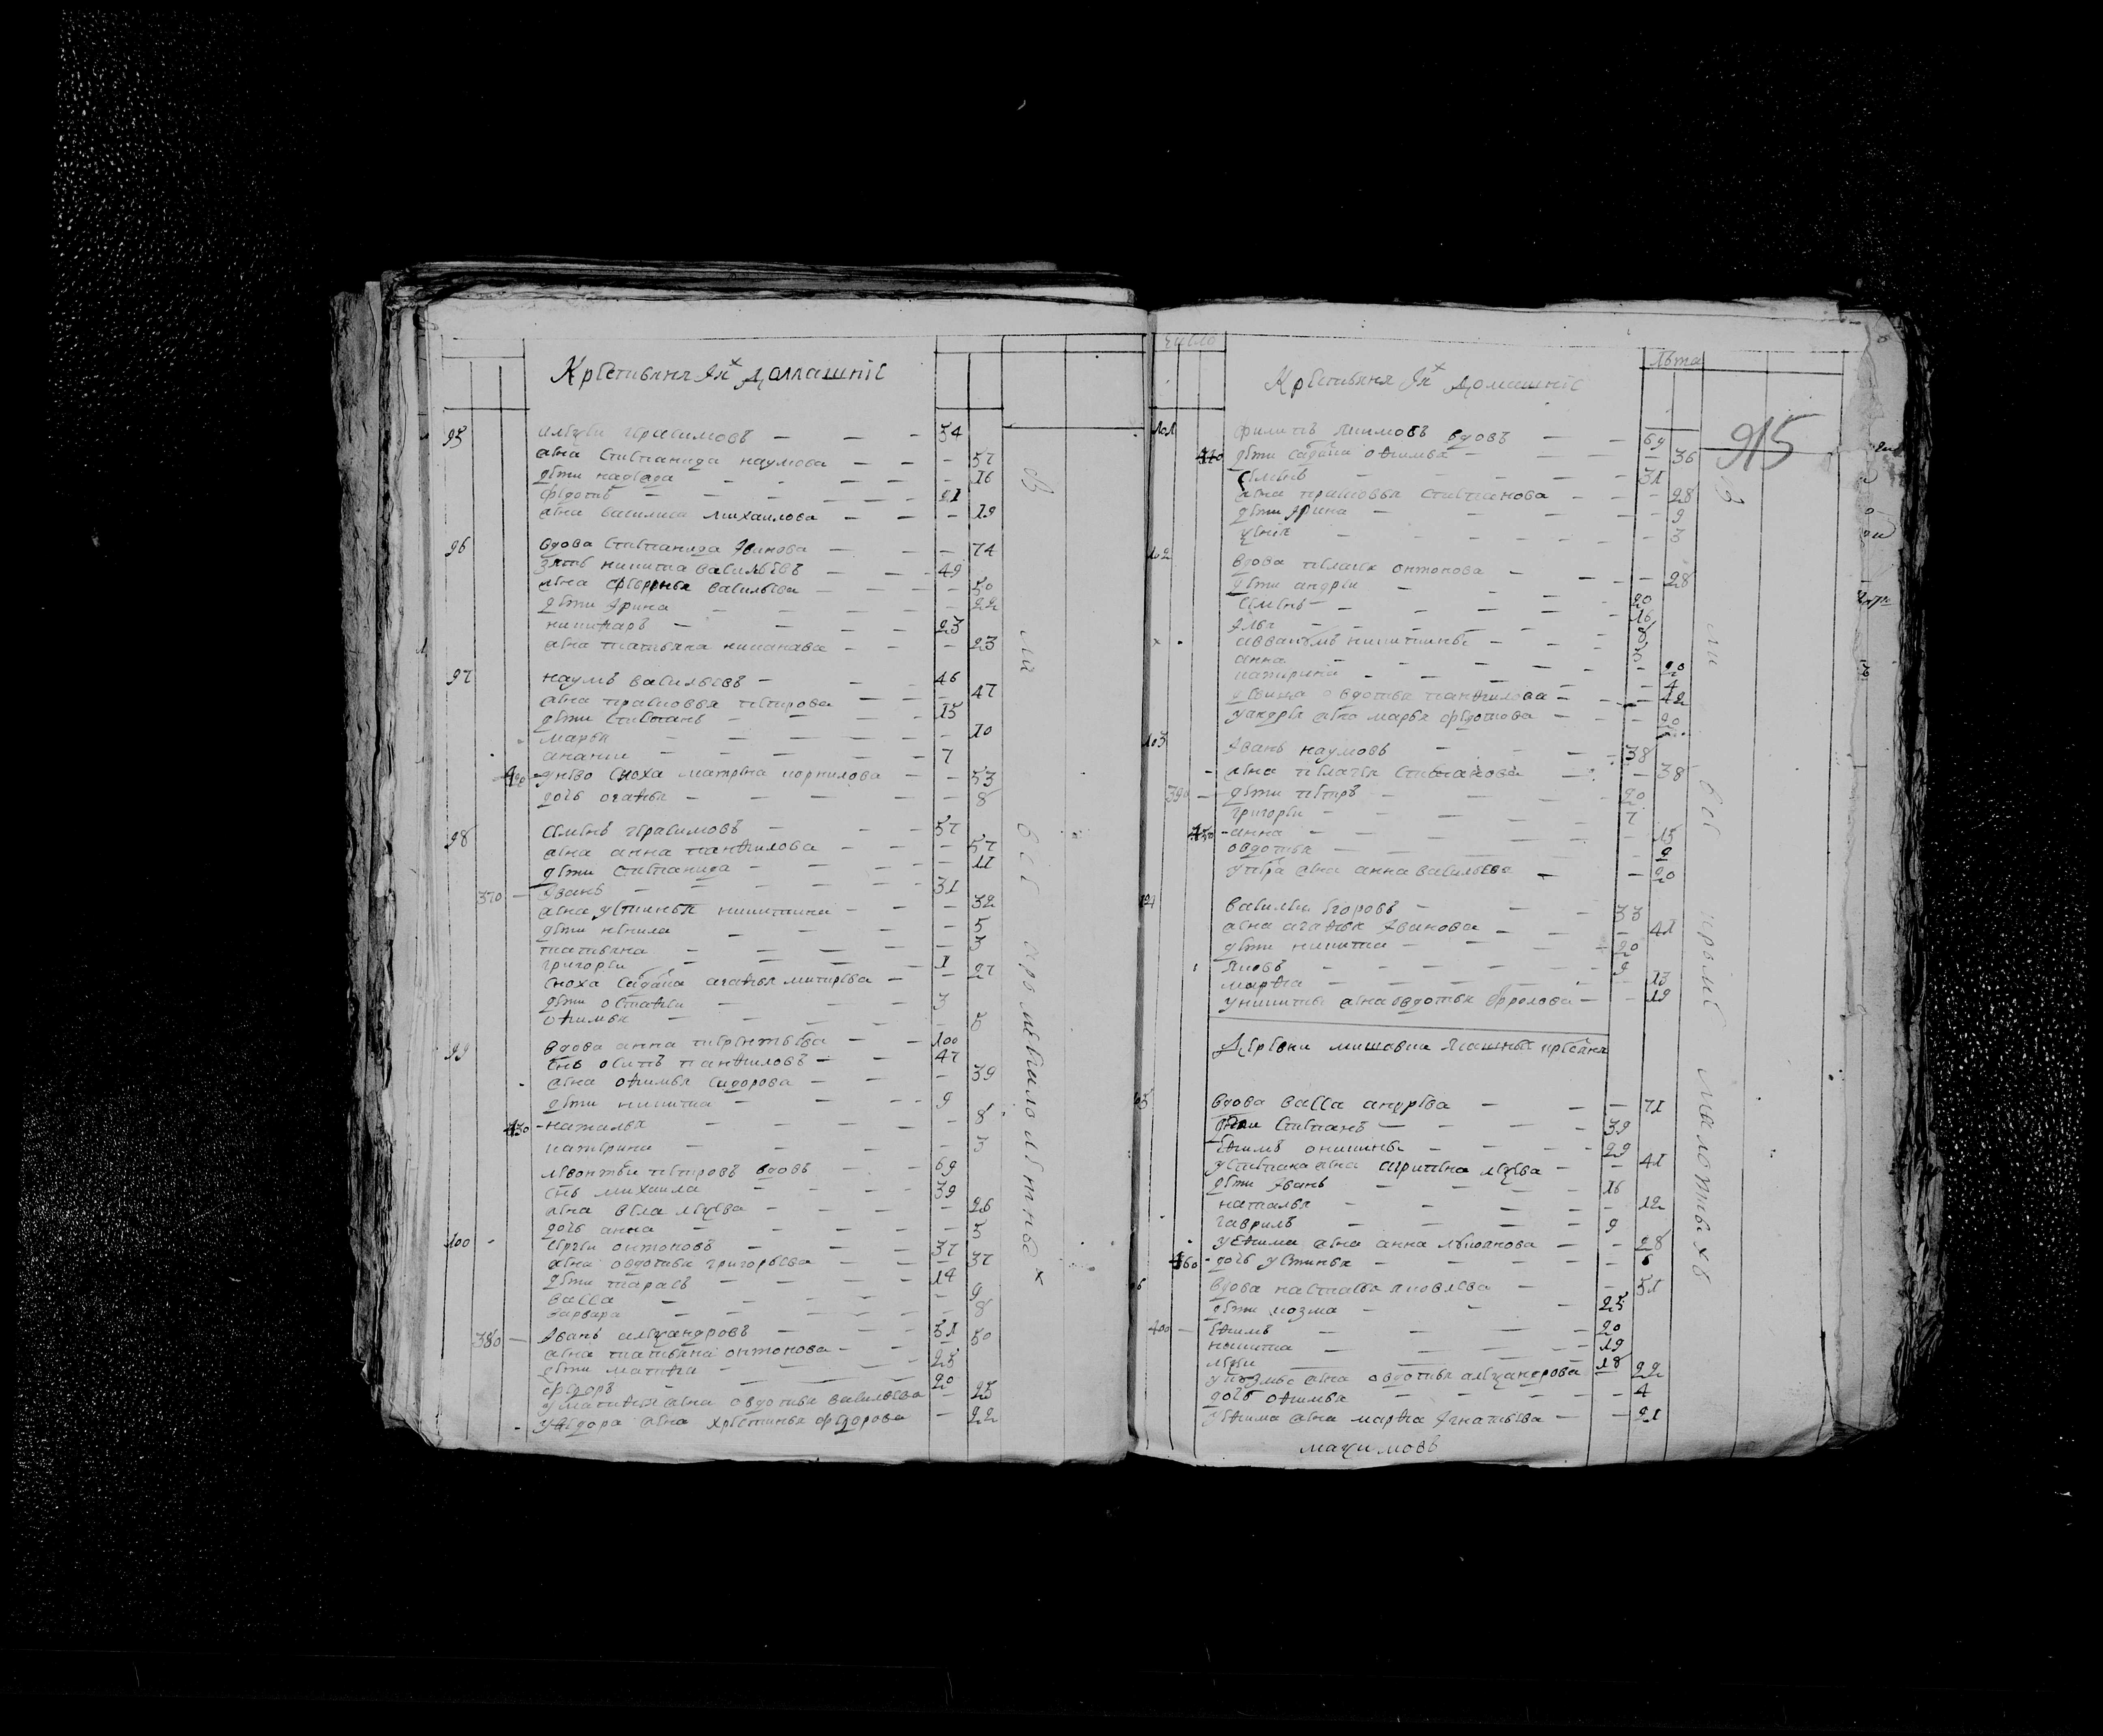 Крестьяня Их домашние
95 алексеи герасимовъ — — — 54
жена степанида наумова — — — 57
дети надежда — — — 16
федотъ — — — 21
жена василиса михаилова — — — 19
96 вдова степанида иванова — — — 74
зять никита васильевъ — — 49
жена федосья васильева — — — 50
дети ирина — — — 22
никифаръ — — 23
жена татьяна
— 23
97 наумъ васильевъ — — 46
жена прасковья петрова — — 47
дети степанъ — — — 15
марья — — — 10
анания — — — 7
420 у него сноха матрена корнилова — — 53
дочь агафья — — — 8
98 семенъ герасимовъ — — — 57
жена анна панфилова — — — 57
дети степанида — — — 11
370 — иванъ — — — 31
жена устинья никитина — — — 32
дети ненила — — — 5
татьяна — — — 3
григореи — — — 1
сноха солдатка агафья — — 27
дети остафеи — — — 3
офимья — — — 5
99 вдова анна терентьева — — 100
снъ осипъ панфиловъ — — 47
жена офимья сидорова — — — 39
дети никита — — — 9
430 - наталья — — — 8
катерина — — — 3
левонтеи петровъ вдовъ — — 69
снъ михаила — — — 39
жена векла алексева — — — 26
дочь анна — — — 5
100 сергеи онтоновъ — — — 37
жена овдотья григорьева — — — 37
дети тарасъ — — — 14
васса — — — 9
варвара — — — 8
380 — иванъ александровъ — — 51
жена татьяна онтонова — — 50
дети матфеи — — — 25
федоръ — — — 20
у матфея жена овдотья васильева — 25
- у федора жена христинья федорова — 22
в
ли
все
кроме
малолетные
число
Крестьяня Их домашние
лета
915
101 филипъ якимовъ вдовъ — — 69
дети офимья — — — 36
семенъ — — — 31
жена прасковья степанова — — — 28
дети ирина — — — 9
— — — 3
102 вдова пелагея онтонова — — — 28
дети андреи — — — 20
семенъ — — — 16
илья — — — 8
аввакумъ никитины — — — 3
анна — — — 20
катерина — — — 4
овдотья панфилова — — — 42
у андрея жена марья федотова — — 20
103 иванъ наумовъ — — — 38
жена пелагея степанова — — — 38
390 — дети петръ — — — 20
григореи — — — 7
450 - анна — — — 15
овдотья — — — 9
у петра жена анна васильева — — 20
104 василеи егоровъ — — 33
жена агафья иванова — — — 41
дети никита — — — 20
яковъ — — — 9
марфа — — — 13
у никиты жена овдотья фролова — — 19
Деревни мишавки ясашные крестьяня
105 вдова васса андреева — — — 71
дети степанъ — — — 39
ефимъ оникины — — — 29
у степана жена агрипена алексева — — 41
дети иванъ — — — 16
наталья — — — 12
гаврилъ — — — 9
у ефима жена анна — — 28
460 - дочь устинья — — — 6
106 вдова настасья яковлева — — — 51
дети козма — — — 25
400 — ефимъ — — — 20
никита — — — 19
алексеи — — — 18
у козмы жена овдотья александрова — 22
дочь офимья — — — 4
у ефима жена марфа игнатьева — — 21
в
ли
все
кроме
малолетныхъ
максимовъ